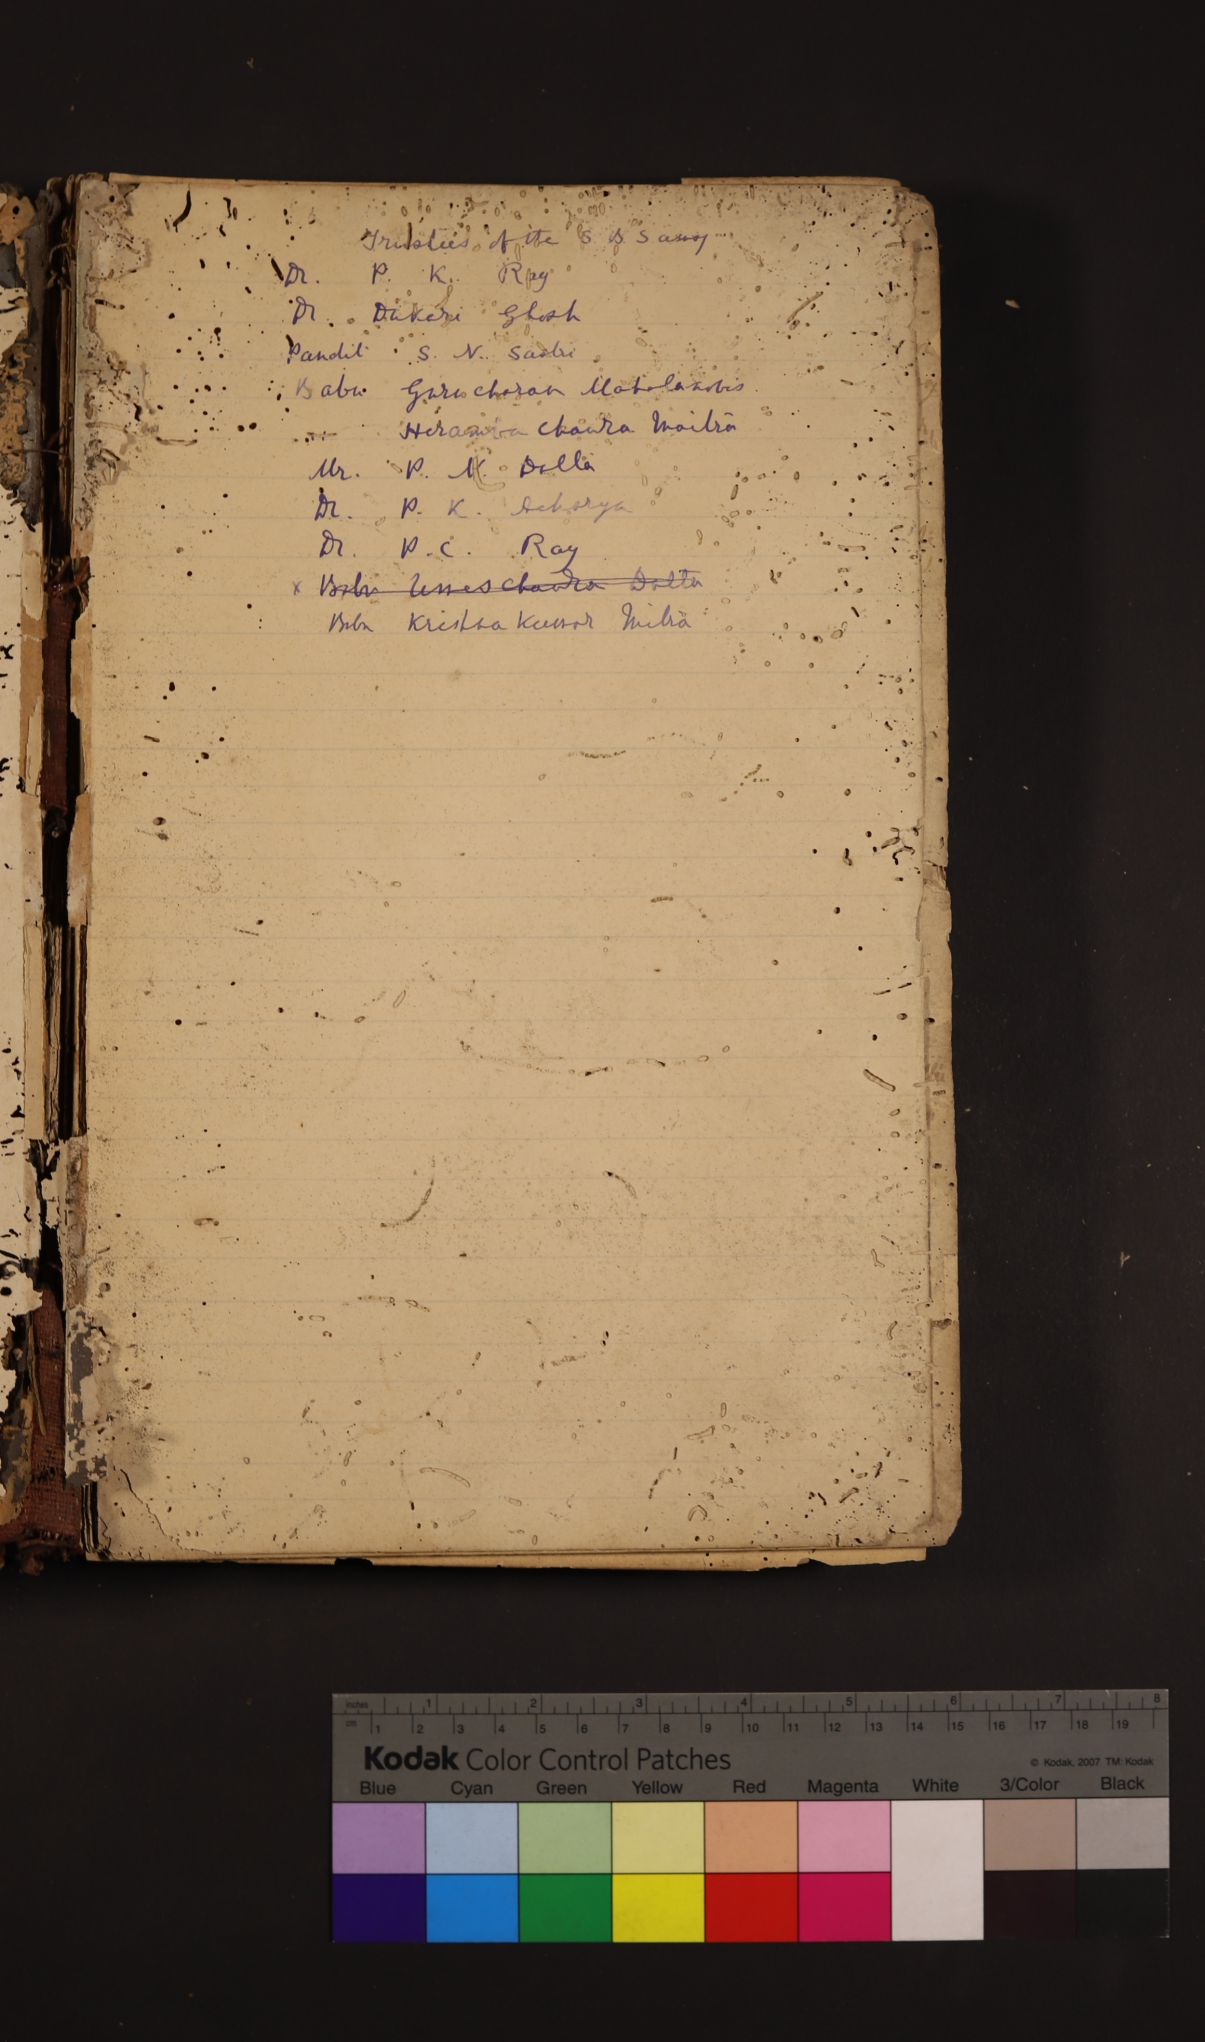 Trustees of the S B Samaj
Dr. P. K. Ray
Dr. Dukari Ghosh
Pandit S. N. Sastri
Babu Gurucharan Mahalanobis
" Heramva Chandra Maitra
Mr. P. N. Datta
Dr. P. K. Acharya
Dr. P. C. Ray
x Babu Umes Chandra Datta
Babu Krishna Kumar Mitra
inches 1 2 3 4 5 6 7 8
cm 1 2 3 4 5 6 7 8 9 10 11 12 13 14 15 16 17 18 19
Kodak Color Control Patches © Kodak, 2007 TM: Kodak
Blue Cyan Green Yellow Red Magenta White 3/Color Black